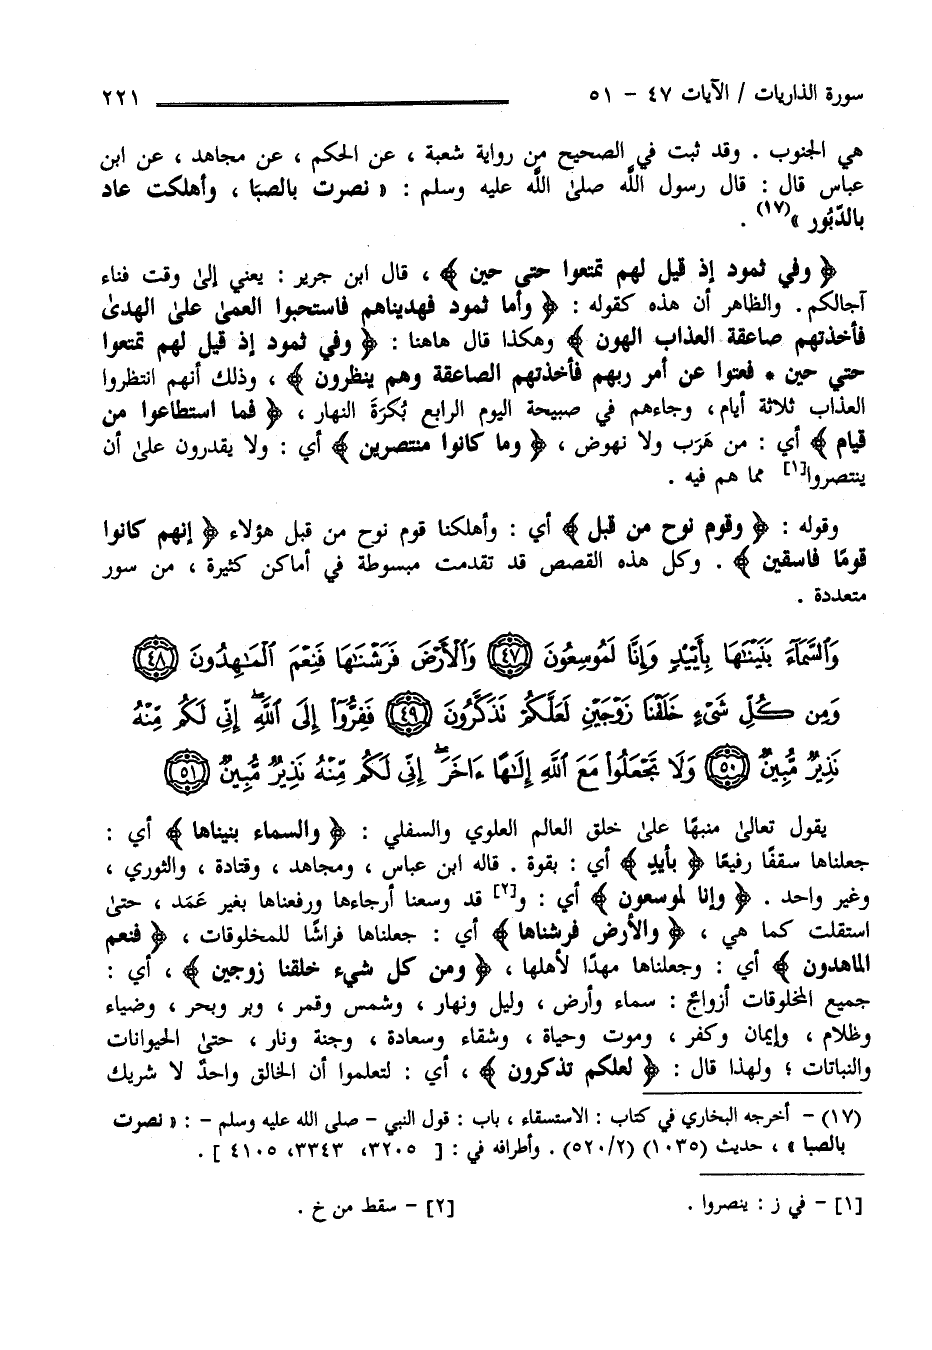 سورة الذاريات / الآيات ٤٧ – ٥١ ٢٢١
هي الجنوب . وقد ثبت في الصحيح من رواية شعبة ، عن الحكم ، عن مجاهد ، عن ابن
عباس قال : قال رسول اللَّه صلىٰ اللَّه عليه وسلم : « نصرت بالصبا ، وأهلكت عاد
بالدَّبُور »(١٧) .
﴿ وفي ثمود إذ قيل لهم تمتعوا حتى حين ﴾ ، قال ابن جرير : يعني إلىٰ وقت فناء
آجالكم . والظاهر أن هذه كقوله : ﴿ وأما ثمود فهديناهم فاستحبوا العمىٰ علىٰ الهدىٰ
فأخذتهم صاعقة العذاب الهون ﴾ وهكذا قال هاهنا : ﴿ وفي ثمود إذ قيل لهم تمتعوا
حتي حين * فعتوا عن أمر ربهم فأخذتهم الصاعقة وهم ينظرون ﴾ ، وذلك أنهم انتظروا
العذاب ثلاثة أيام، وجاءهم في صبيحة اليوم الرابع بُكرَةَ النهار ، ﴿ فما استطاعوا من
قيام ﴾ أي : من هَرَب ولا نهوض ، ﴿ وما كانوا منتصرين ﴾ أي : ولا يقدرون علىٰ أن
ينتصروا[١] مما هم فيه .
وقوله : ﴿ وقوم نوح من قبل ﴾ أي : وأهلكنا قوم نوح من قبل هؤلاء ﴿ إنهم كانوا
قومًا فاسقين ﴾ . وكل هذه القصص قد تقدمت مبسوطة في أماكن كثيرة ، من سور
متعددة .
وَٱلسَّمَآءَ بَنَيْنَٰهَا بِأَيْيْدٍ وَإِنَّا لَمُوسِعُونَ ٤٧ وَٱلْأَرْضَ فَرَشْنَٰهَا فَنِعْمَ ٱلْمَٰهِدُونَ ٤٨
وَمِن كُلِّ شَىْءٍ خَلَقْنَا زَوْجَيْنِ لَعَلَّكُمْ تَذَكَّرُونَ ٤٩ فَفِرُّوٓا۟ إِلَى ٱللَّهِ ۖ إِنِّى لَكُم مِّنْهُ
نَذِيرٌ مُّبِينٌ ٥٠ وَلَا تَجْعَلُوا۟ مَعَ ٱللَّهِ إِلَٰهًا ءَاخَرَ ۖ إِنِّى لَكُم مِّنْهُ نَذِيرٌ مُّبِينٌ ٥١
يقول تعالىٰ منبهًا علىٰ خلق العالم العلوي والسفلي : ﴿ والسماء بنيناها ﴾ أي :
جعلناها سقفًا رفيعًا ﴿ بأيدٍ ﴾ أي : بقوة . قاله ابن عباس ، ومجاهد ، وقتادة ، والثوري ،
وغير واحد . ﴿ وإنا لموسعون ﴾ أي : و[٢] قد وسعنا أرجاءها ورفعناها بغير عَمَد ، حتىٰ
استقلت كما هي ، ﴿ والأرض فرشناها ﴾ أي : جعلناها فراشًا للمخلوقات ، ﴿ فنعم
الماهدون ﴾ أي : وجعلناها مهدًا لأهلها ، ﴿ ومن كل شيء خلقنا زوجين ﴾ ، أي :
جميع المخلوقات أزواجٌ : سماء وأرض ، وليل ونهار ، وشمس وقمر ، وبر وبحر ، وضياء
وظلام ، وإيمان وكفر ، وموت وحياة ، وشقاء وسعادة ، وجنة ونار ، حتىٰ الحيوانات
والنباتات ؛ ولهذا قال : ﴿ لعلكم تذكرون ﴾ ، أي : لتعلموا أن الخالق واحدٌ لا شريك
(١٧) – أخرجه البخاري في كتاب : الاستسقاء ، باب : قول النبي – صلى الله عليه وسلم – : « نصرت
بالصبا » ، حديث (١٠٣٥) (٥٢٠/٢) . وأطرافه في : [ ٣٢٠٥، ٣٣٤٣، ٤١٠٥ ] .
[١] – في ز : ينصروا . [٢] – سقط من خ .